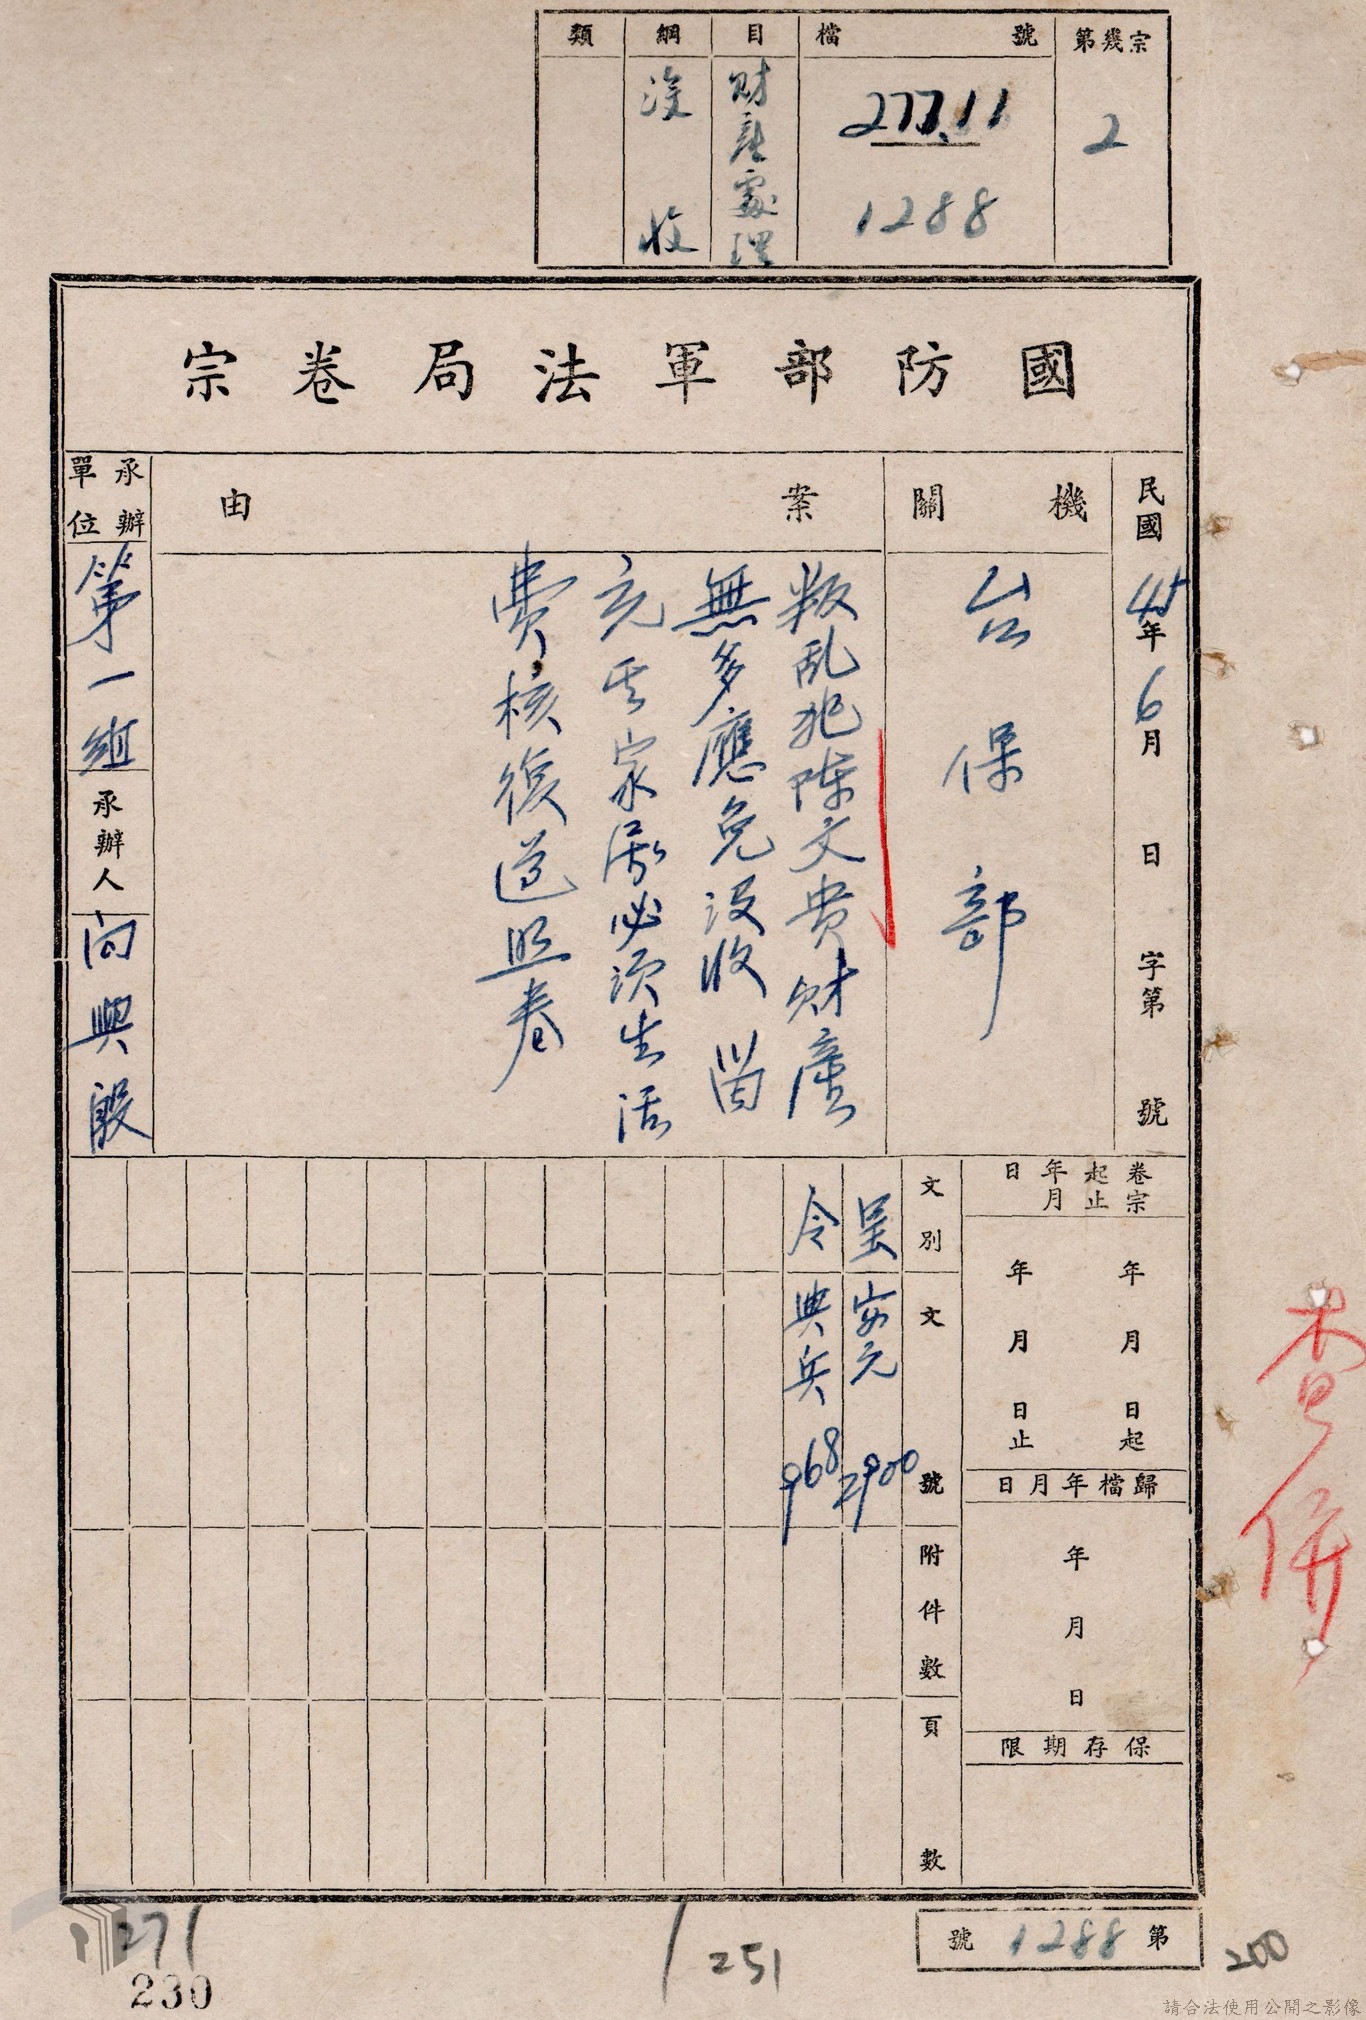 類 綱 目 檔號 第幾宗
沒收
財產處理
277.11
1288
2
國防部軍法局卷宗
民國45年6月 日 字第 號
機關
台保部
案由
叛乱犯陈文贵財產
無多應免没收留
充其家屬必須生活
費核復遵照卷
承辦單位
第一組
承辦人
向興殷
卷宗起止年月日
年月日起
年月日止
歸檔年月日
年月日
保存期限
文別
文號
附件數
頁數
呈 安元 2900
令 典兵 968
第1288號
查併
271
230
251
200
請合法使用公開之影像